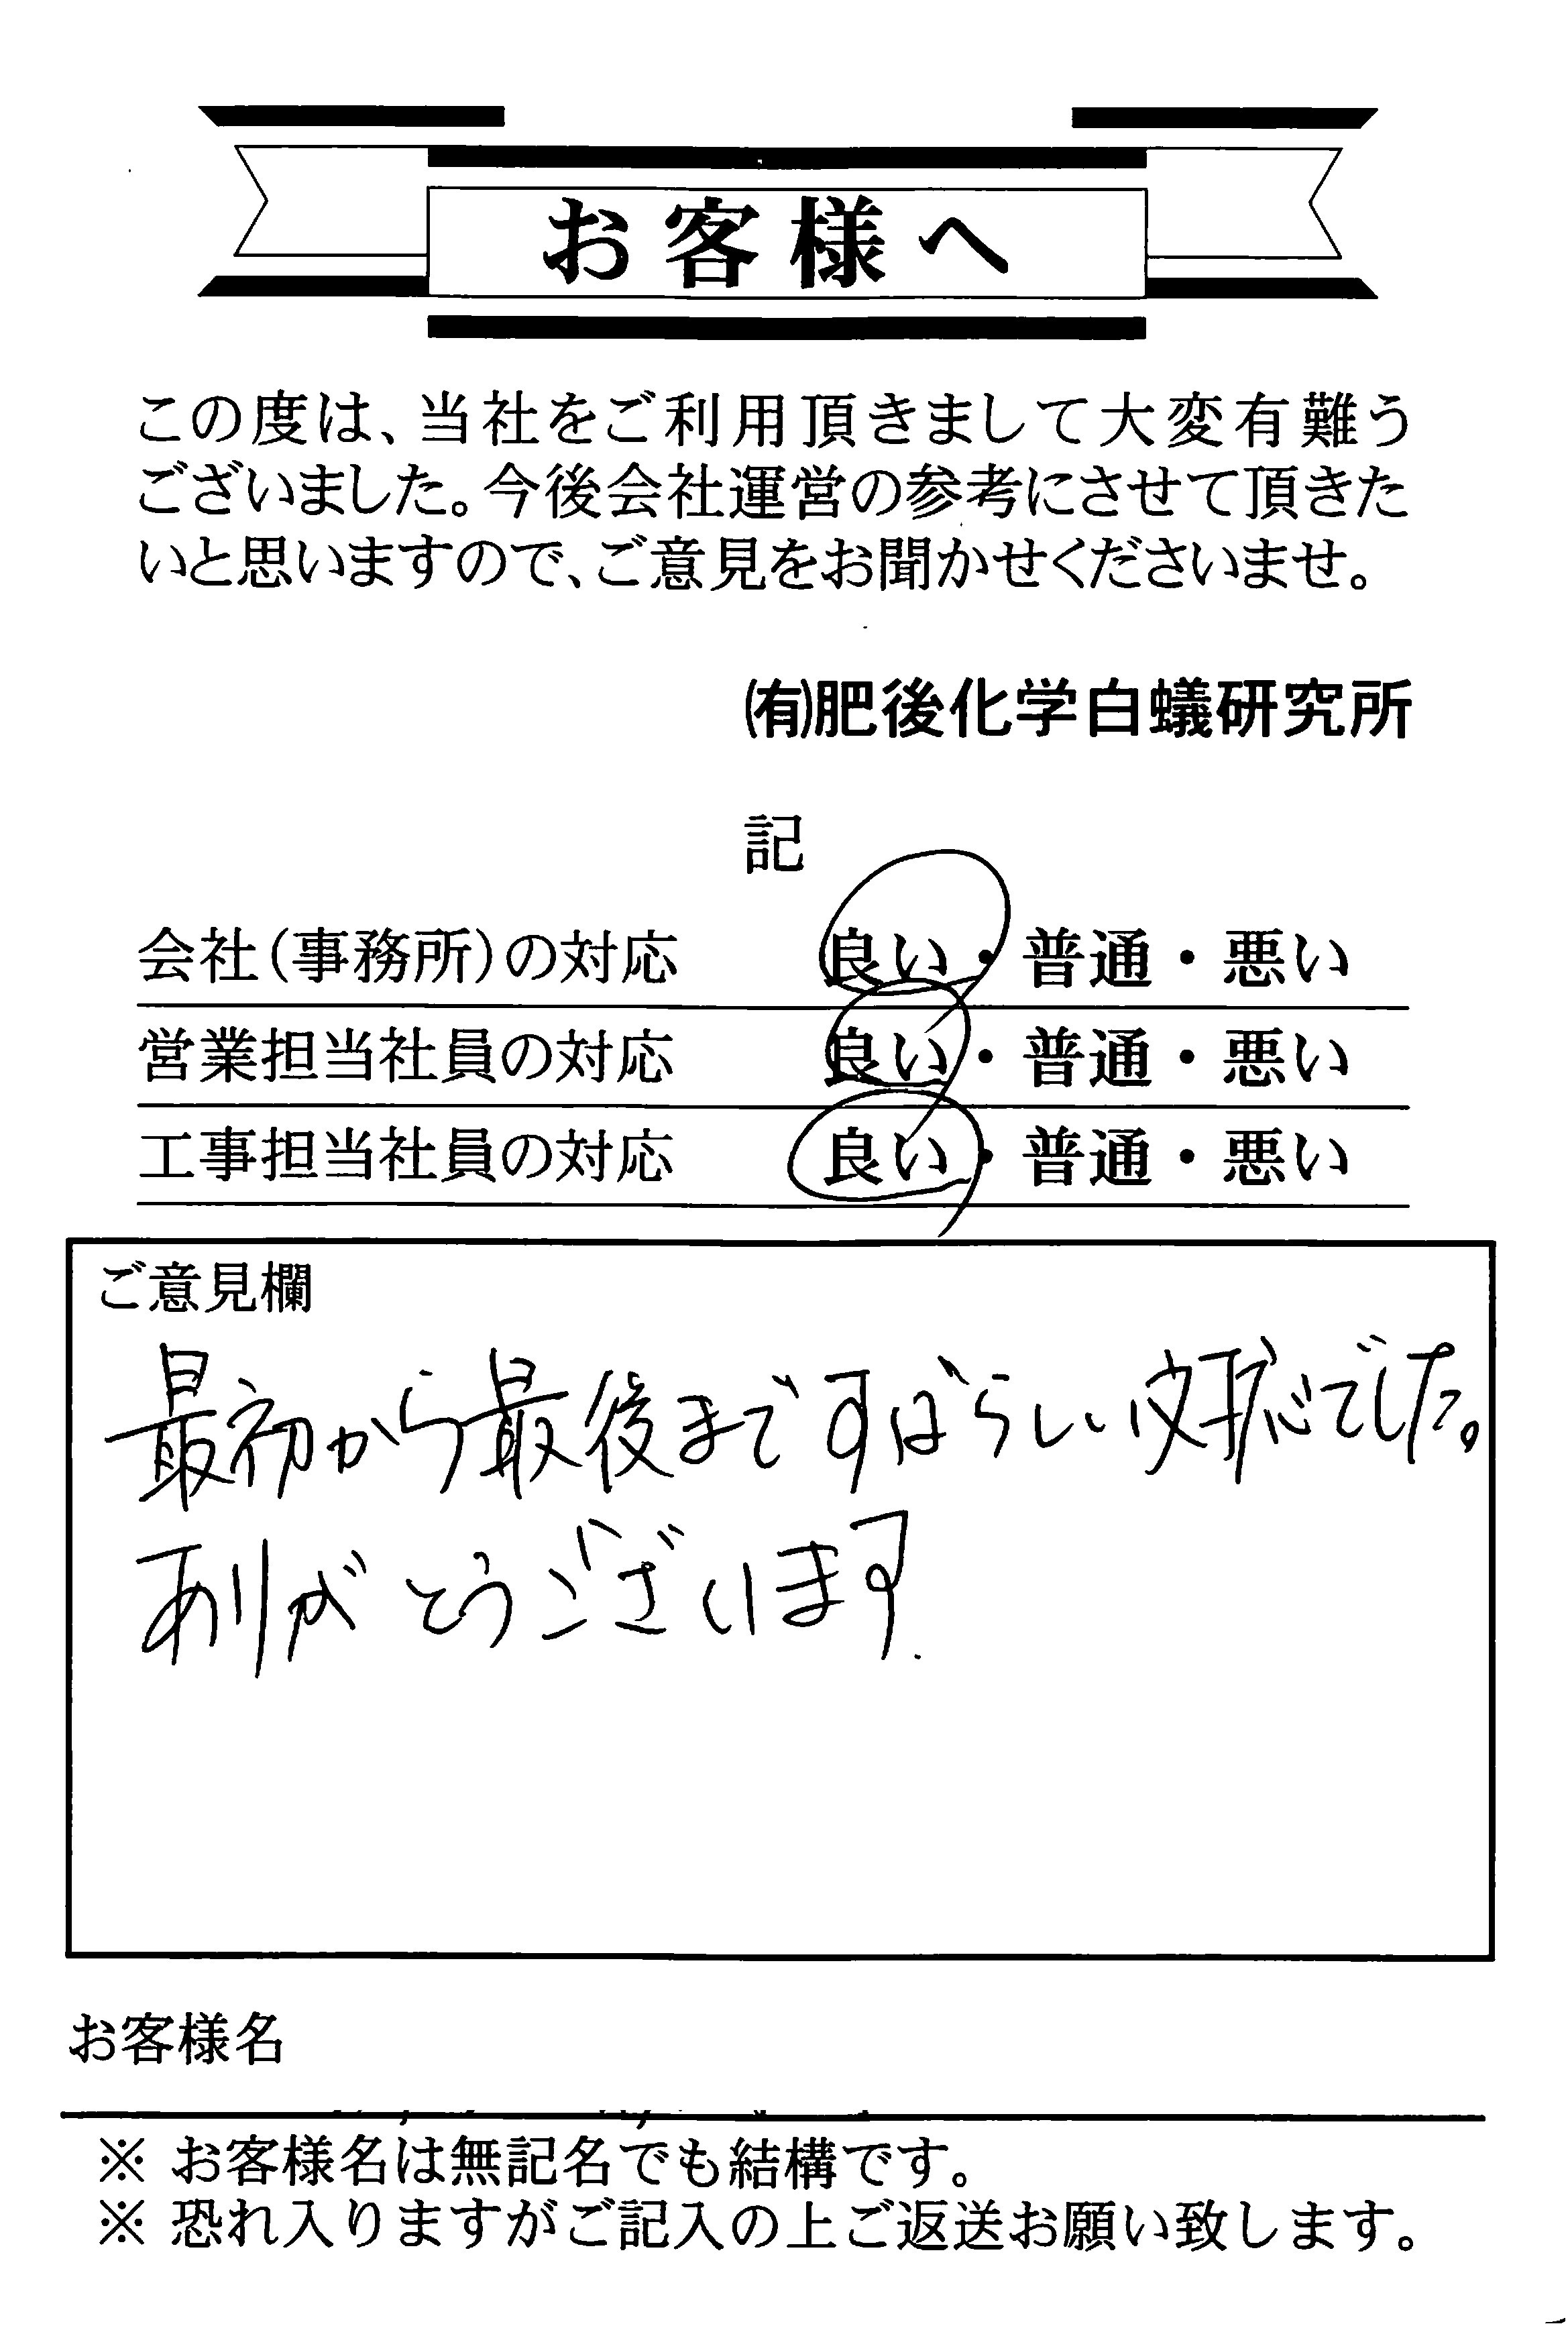 お客様へ
この度は、当社をご利用頂きまして大変有難う
ございました。今後会社運営の参考にさせて頂きた
いと思いますので、ご意見をお聞かせくださいませ。
㈲肥後化学白蟻研究所
記
会社（事務所）の対応 良い・普通・悪い
営業担当社員の対応 良い・普通・悪い
工事担当社員の対応 良い・普通・悪い
ご意見欄
最初から最後まですばらしい対応でした。
ありがとうございます.
お客様名
※ お客様名は無記名でも結構です。
※ 恐れ入りますがご記入の上ご返送お願い致します。